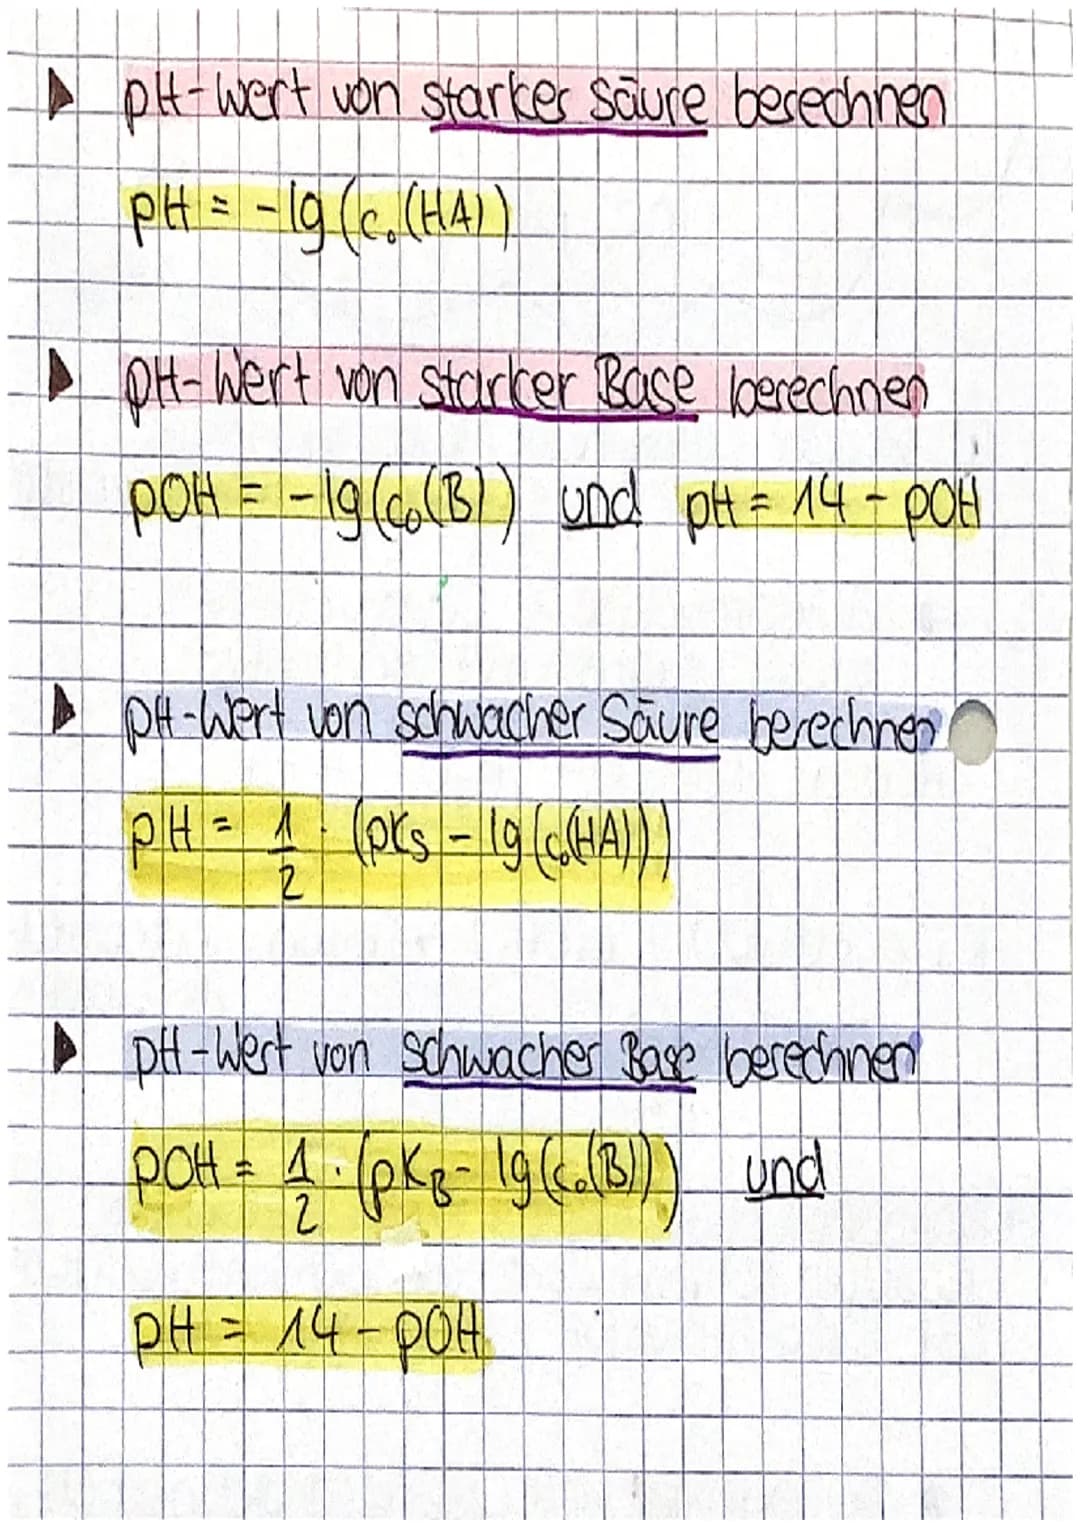 pH-Wert von starker Säure berechnen
pH = -lg (c₀(HA))
pH-Wert von starker Base berechnen
pOH = -lg (c₀(B)) und pH = 14 - pOH
pH-Wert von schwacher Säure berechnen
pH = 1/2 · (pKs - lg (c₀(HA)))
pH-Wert von schwacher Base berechnen
pOH = 1/2 · (pK_B - lg (c₀(B))) und
pH = 14 - pOH